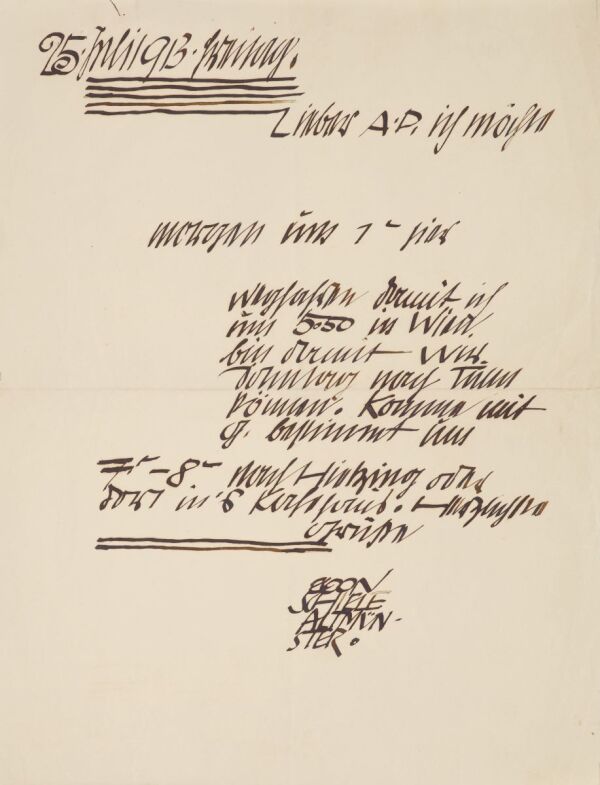 25. Juli 1913. Freitag.
Lieber A. P. ich möchte
morgen um 1 ͪ hier
wegfahren damit ich
um 5·50 in Wien
bin damit wir
Sonntag nach Tulln
können. Komme mit
G. bestimmt um
7 ͪ – 8 ͪ nach Hietzing oder
dort in's Kaffehaus. Herzlichste
Grüße
EGON
SCHIELE
ALTMÜN-
STER.